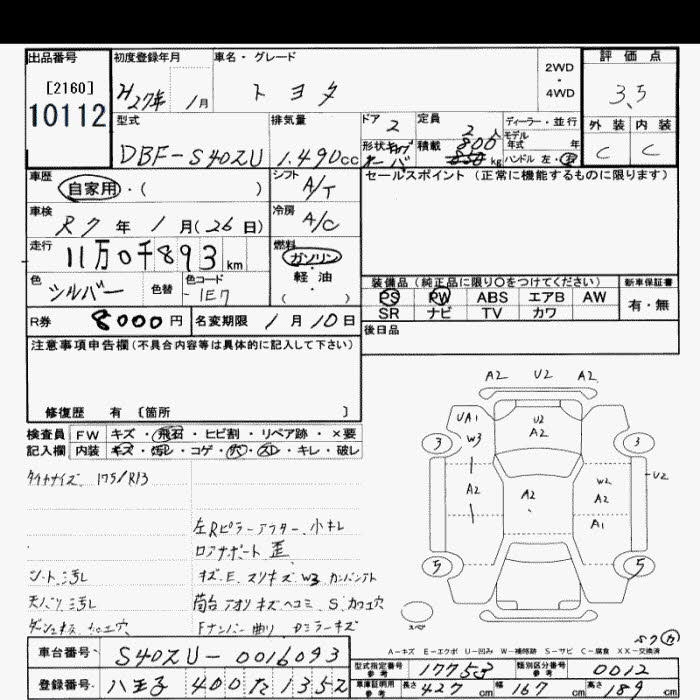 出品番号
[2160]
10112
初度登録年月
H27年 1月
車名・グレード
トヨタ
2WD
・
4WD
評価点
3.5
外装 内装
C C
型式
DBF-S402U
排気量
1.490cc
ドア 2
定員 2人
形状
積載 800 kg
ディーラー・並行
モデル年式 年
ハンドル 左・右
車歴
自家用・( )
シフト
A/T
セールスポイント(正常に機能するものに限ります)
車検
R7年 1月(26日)
冷房
A/C
走行
11万0千893km
燃料
ガソリン
・
軽・油
( )
色
シルバー
色替
色コード
1E7
装備品(純正品に限り○をつけてください)
PS PW ABS エアB AW
SR ナビ TV カワ
新車保証書
有・無
R券 8000円
名変期限 1月10日
後日品
注意事項申告欄(不具合内容等は具体的に記入して下さい)
修復歴 有 〔箇所 〕
検査員 FW キズ・飛石・ヒビ割・リペア跡・×要
記入欄 内装 キズ・汚レ・コゲ・穴・スレ・キレ・破レ
タイヤサイズ 175/R13
左Rピラーアフター 小キレ
ロアサポート 歪
シート汚レ
キズ.E.スリキズ W3 カンバンアト
天バリ汚レ
荷台アオリキズヘコミ S カワ穴
Fナンバー曲リ Dミラーキズ
A2 U2 A2
UA1 U2
A2
W3
3 3
A2 A2 W2
A2
U2
A1
5 5
スペア
A-キズ E-エクボ U-凹み W-補修跡 S-サビ C-腐食 XX-交換済
車台番号 S402U-0016093
登録番号 八王子 400 た 1352
型式指定番号
参考
17753
類別区分番号
参考
0012
車庫証明用
参考
長さ 427cm 幅 167cm 高さ 189cm